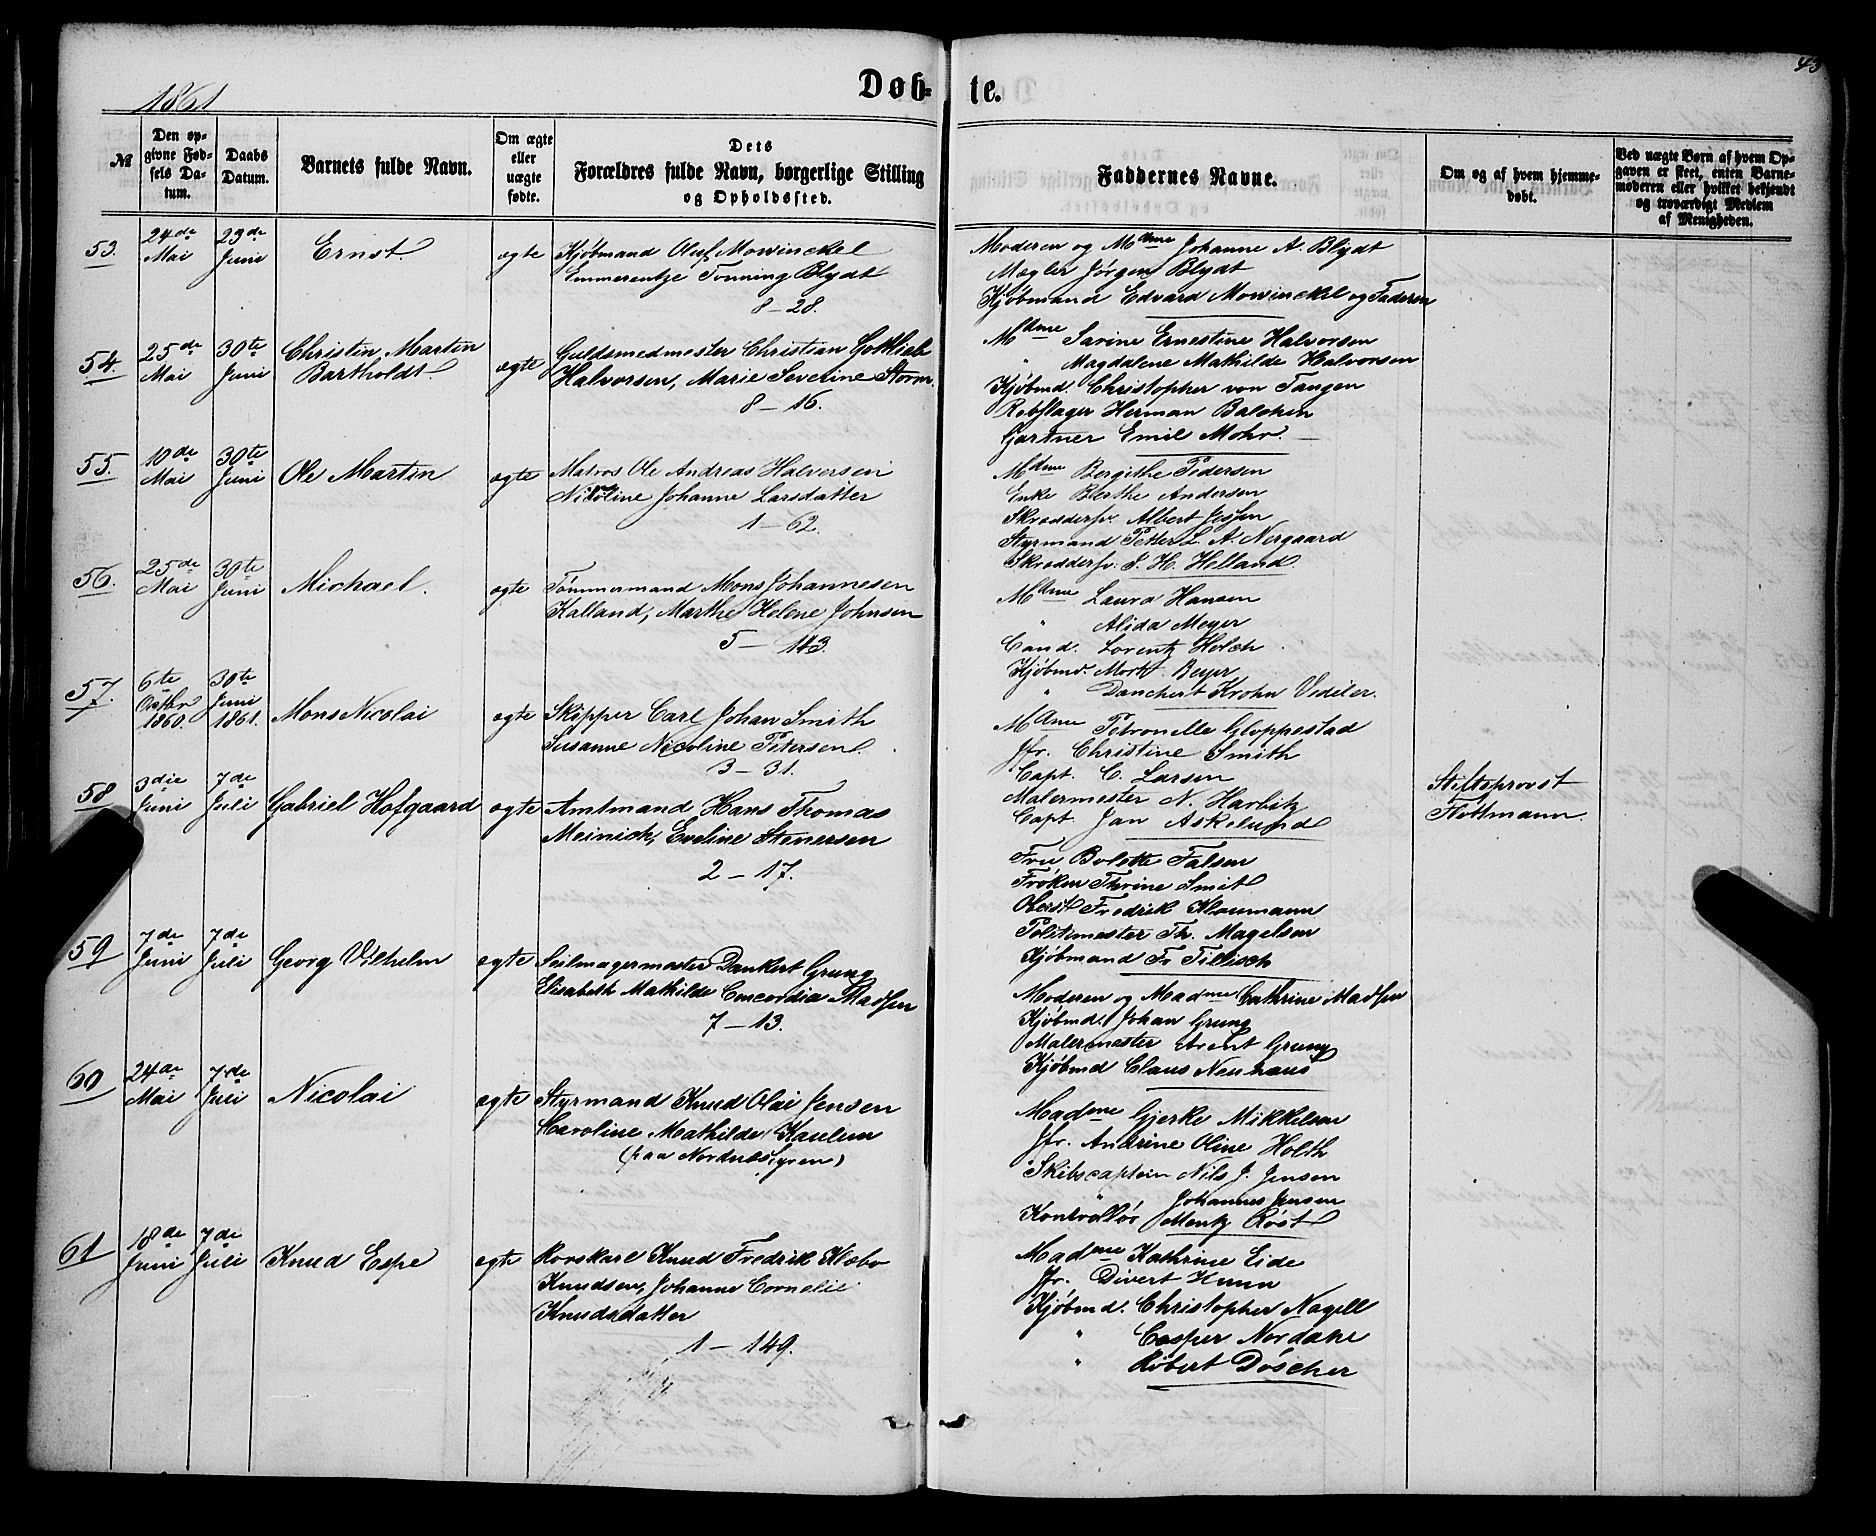 43
1861
Døb- te.
№
Den op-
givne Fød-
sels Da-
tum.
Daabs
Datum.
Barnets fulde Navn.
Om ægte
eller
uægte
fødte.
Dets
Forældres fulde Navn, borgerlige Stilling
og Opholdssted.
Faddernes Navne.
Om og af hvem hjemme-
døbt.
Ved uægte Børn af hvem Op-
gaven er skeet, enten Barne-
moderen eller hvilket bekjendt
og troværdigt Medlem
af Menigheden.
53. 24de Mai 23de Juni Ernst. ægte
Kjøbmand Oluf Mowinckel
Emmerentze Tonning Blydt
8 – 28.
Moderen og Mdme Johanne A Blydt
Mægler Jørgen Blydt
Kjøbmand Edvard Mowinckel og Faderen
54. 25de Mai 30te Juni Christin Martin
Bartholdt. ægte
Guldsmedmester Christian Gottlieb
Halvorsen, Marie Severine Storm.
8 – 16.
Mdme Sarine Ernestine Halvorsen
" Magdalene Mathilde Halvorsen
Kjøbmd. Christopher von Tangen
Rebslager Herman Balchen
Gartner Emil Mohr.
55. 10de Mai 30te Juni Ole Martin ægte
Matros Ole Andreas Halversen
Nicoline Johanne Larsdatter
1 – 62.
Mdme Bergithe Pedersen
Enke Berthe Andersen
Skræddersv. Albert Jessen
Styrmand Petter L. A. Nergaard
Skræddersv. S. H. Helland
56. 25de Mai 30te Juni Michael. ægte
Tømmermand Mons Johannesen
Kalland, Marthe Helene Johnsen
5 – 143.
Mdme Laura Hansen
" Alida Meyer
Cand. Lorentz Holch
Kjøbmd. Mort. Beyer
" Danchert Krohn Vedeler.
57. 6te Octbr 1860. 30te Juni 1861. Mons Nicolai ægte
Skipper Carl Johan Smith
Susanne Nicoline Petersen.
3 – 31.
Mdme Petronelle Gloppestad
Jfr. Christine Smith
Capt. C. Larsen
Malermester N. Harbitz
Capt. Jan Askelund
58 3die Juni 7de Juli Gabriel Hofgaard ægte
Amtmand Hans Thomas
Meinich, Eveline Stenersen
2 – 17.
Fru Bolette Falsen
Frøken Thrine Smit
Oberst Fredrik Kloumann
Politimester Th. Magelsen
Kjøbmand Fr Tillisch
Stiftsprovst
59 7de Juni 7de Juli Georg Vilhelm ægte
Seilmagermester Dankert Grung
Elisabeth Mathilde Concordia Madsen
7 – 13.
Moderen og Madme Cathrine Madsen
Kjøbmd. Johan Grung
Malermester Arent Grung
Kjøbmd Claus Neuhaus
60 24de Mai 7de Juli Nicolai ægte
Styrmand Knud Olai Jensen
Karoline Mathilde Kaulum
(paa Nordnes)
Madme Gjerke Mikkelsen
Jfr. Andrine Oline Holth
Skibscaptein Nils J. Jensen
" Johannes Jensen
Kontrollør Mentz Rost
61 18de Juni 7de Juli Knud Espe ægte
Rorskarl Knud Fredrik Klæbo
Knudsen, Johanne Cornelie
Knudsdatter
1 – 149.
Madme Kathrine Eide
Jfr. Divert Kunn
Kjøbmd. Christopher Nagell
" Casper Nordahl
" Robert Döscher